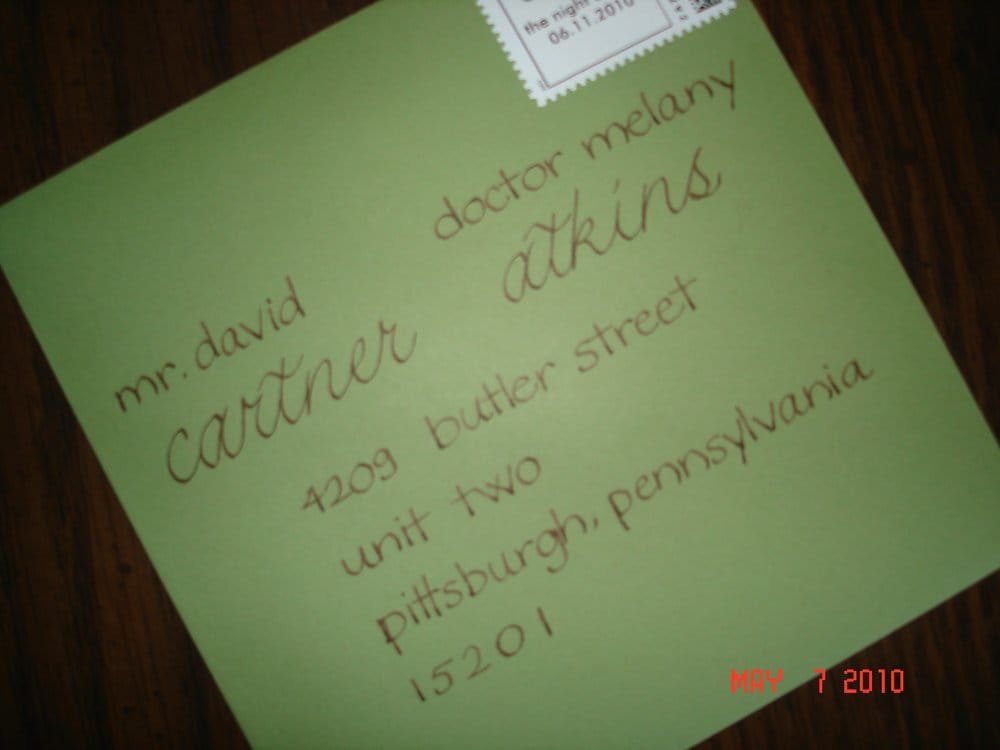 the night
06.11.2010
doctor melany
atkins
mr. david
cartner
4209 butler street
unit two
pittsburgh, pennsylvania
15201
MAY 7 2010